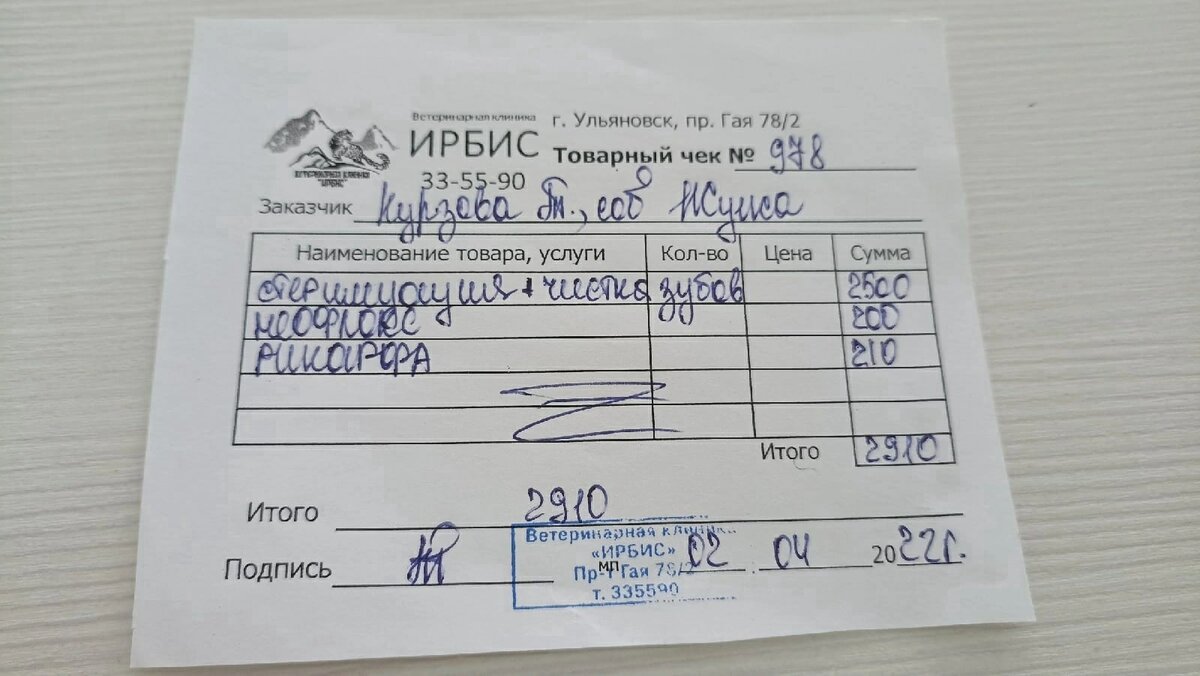 Ветеринарная клиника
ИРБИС
33-55-90
ВЕТЕРИНАРНАЯ КЛИНИКА
"ИРБИС"
г. Ульяновск, пр. Гая 78/2
Товарный чек № 978
Заказчик Курзова Т., соб Жулька
Наименование товара, услуги Кол-во Цена Сумма
стерилизация + чистка зубов 2500
неофлокс 200
РИКАРФА 210
Итого 2910
Итого 2910
Подпись
Ветеринарная клиника
«ИРБИС»
Пр-т Гая 78/2
т. 335590
МП
02 04 2022г.